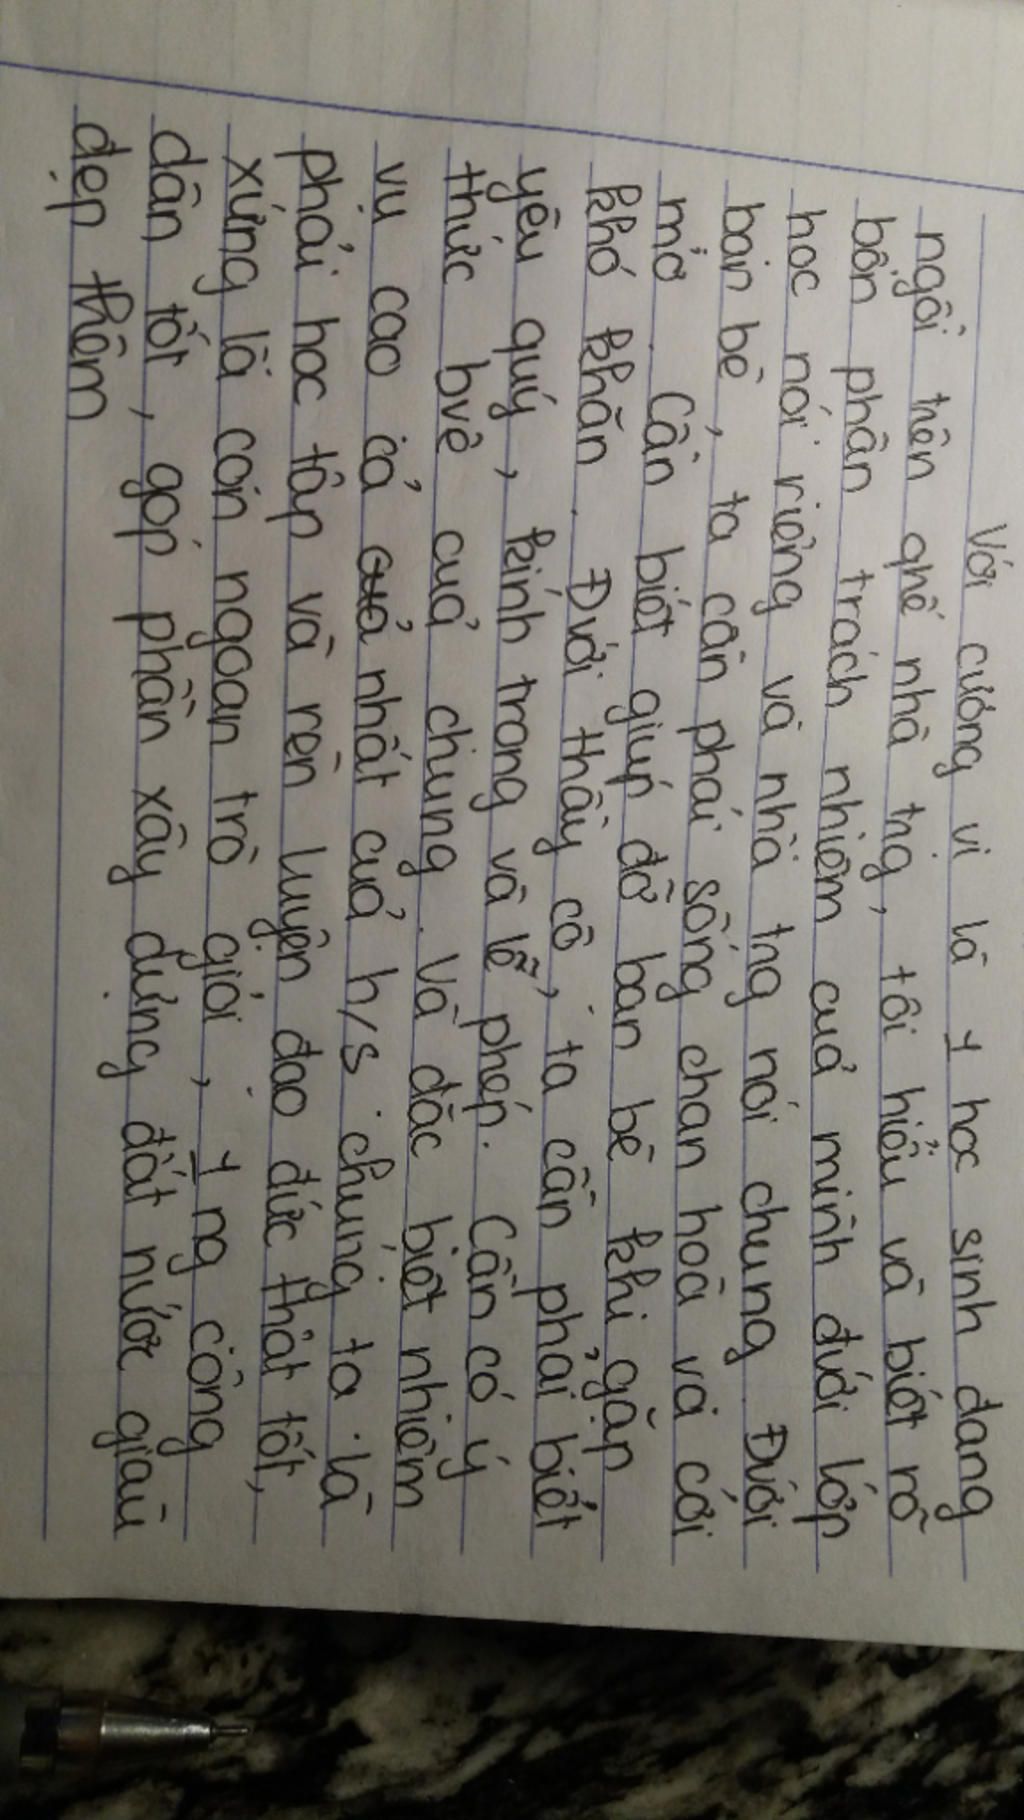 Với cương vị là 1 học sinh đang
ngồi trên ghế nhà trg, tôi hiểu và biết rõ
bổn phận trách nhiệm của mình đưới lớp
học nói riêng và nhà trg nói chung. Đưới
bạn bè, ta cần phải sống chan hoà và cởi
mở. Cần biết giúp đỡ bạn bè khi gặp
khó khăn. Đưới thầy cô, ta cần phải biết
yêu quý, kính trọng và lễ phép. Cần có ý
thức bvệ của chung. Và đặc biệt nhiệm
vụ cao cả nhất của h/s chúng ta là
phải học tập và rèn luyện đạo đức thật tốt,
xứng là con ngoan trò giỏi, 1 ng công
dân tốt, góp phần xây dựng đất nước giàu
đẹp thêm